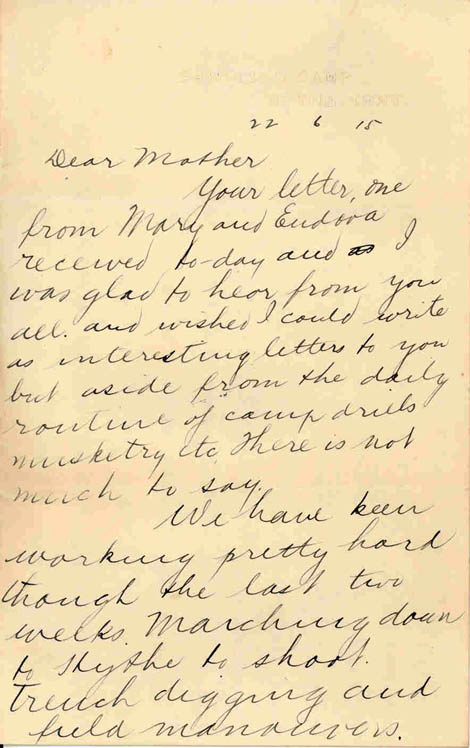 CAMP
22 6 15
Dear Mother
Your letter, one
from Mary and Eudora
received to-day and I
was glad to hear from you
all. and wished I could write
as interesting letters to you
but aside from the daily
routine of camp drills
musketry etc. There is not
much to say.
We have been
working pretty hard
though the last two
weeks. Marching down
to Hythe to shoot.
trench digging and
field manouvers.